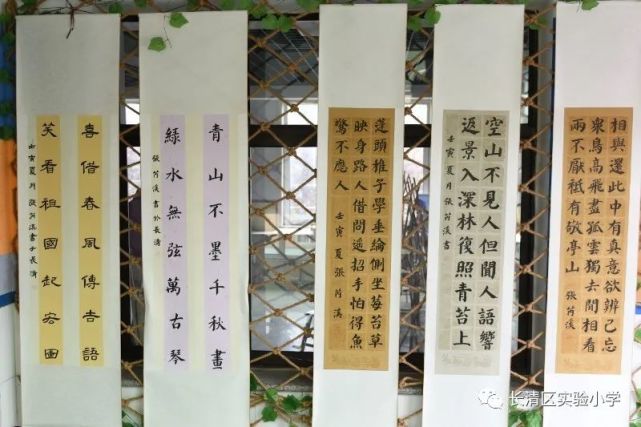 喜借春風傳吉語
笑看祖國起宏圖
壬寅夏月 張芮溪書于長清
青山不墨千秋畫
綠水無弦萬古琴
張芮溪書於長清
蓬頭稚子學垂綸側坐莓苔草
映身路人借問遥招手怕得魚
驚不應人 壬寅夏張芮溪
空山不見人但聞人語響
返景入深林復照青苔上
壬寅夏月張芮溪書
相與還此中有真意欲辨已忘
衆鳥高飛盡孤雲獨去閒相看
兩不厭衹有敬亭山 張芮溪
长清区实验小学